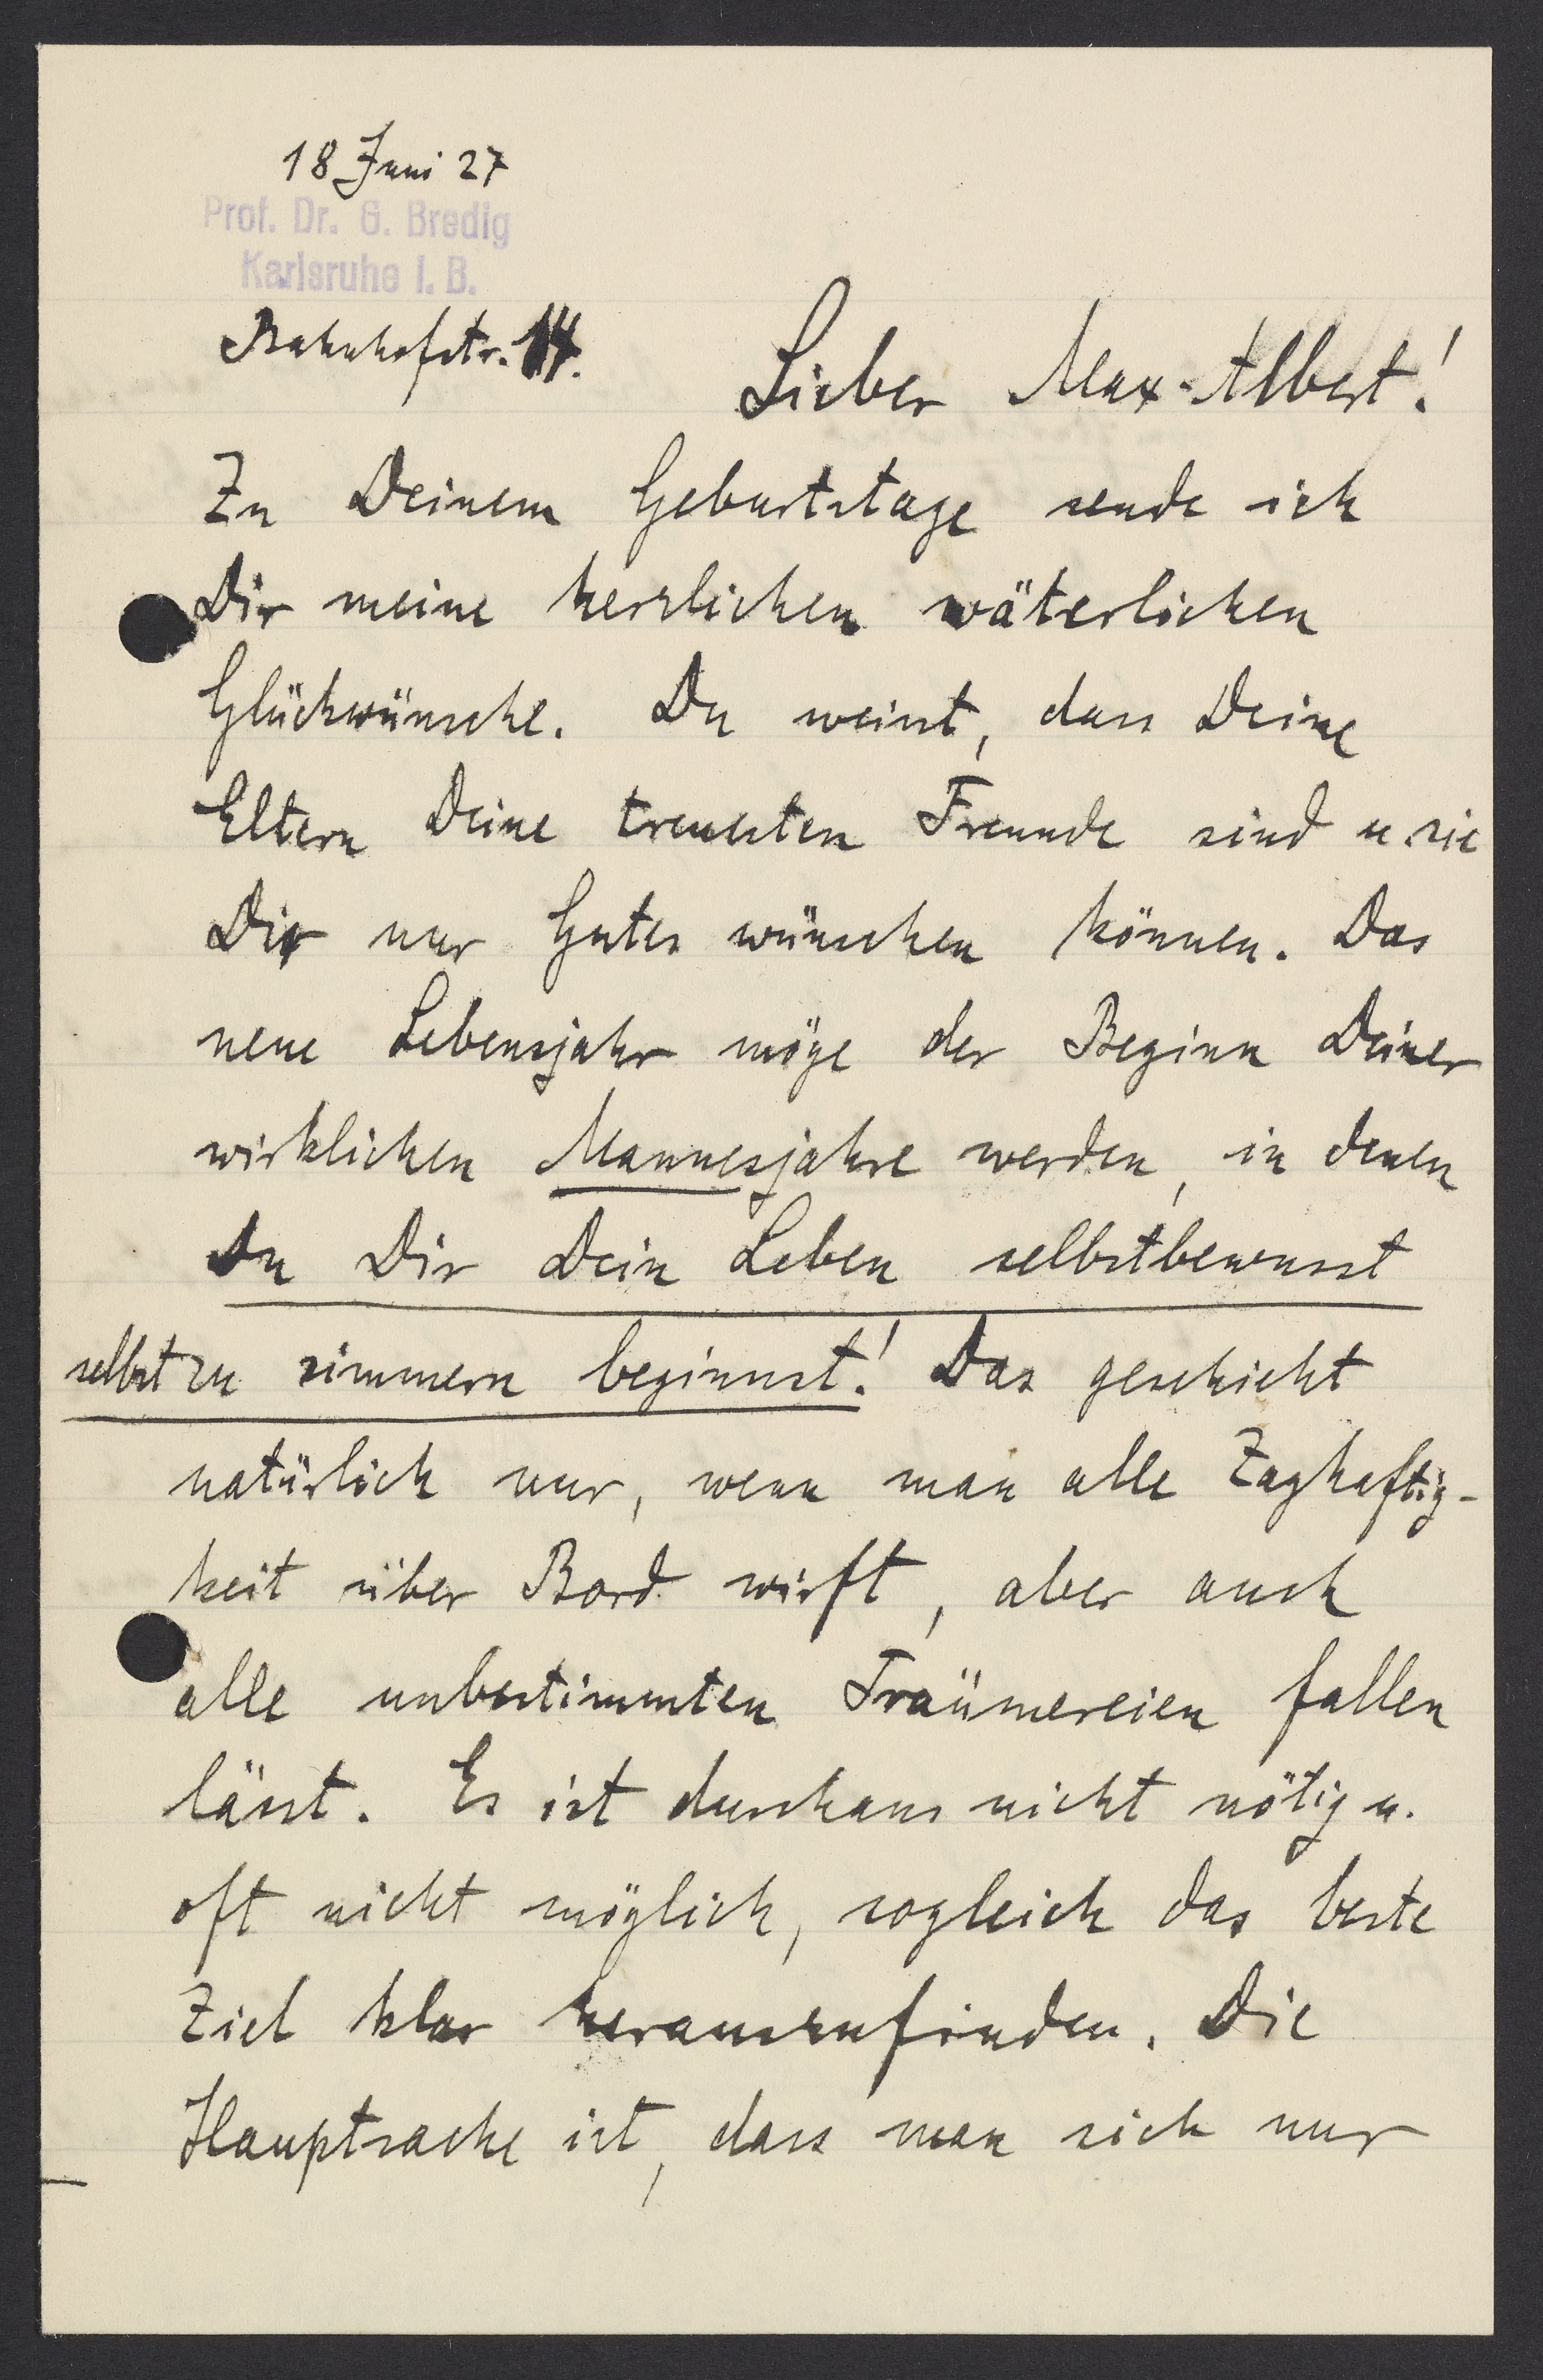 18 Juni 27
Prof. Dr. G. Bredig
Karlsruhe i. B.
Bahnhofstr. 14.
Lieber Max-Albert!
Zu Deinem Geburtstage sende ich
Dir meine herzlichen väterlichen
Glückwünsche. Du weisst, dass Deine
Eltern Deine treuesten Freunde sind u. sie
Dir nur Gutes wünschen können. Das
neue Lebensjahr möge der Beginn Deiner
wirklichen Mannesjahre werden, in denen
Du Dir Dein Leben selbstbewusst
selbst zu zimmern beginnst! Das geschieht
natürlich nur, wenn man alle Zaghaftig-
keit über Bord wirft, aber auch
alle unbestimmten Traümereien fallen
lässt. Es ist durchaus nicht nötig u.
oft nicht möglich, sogleich das beste
Ziel klar herauszufinden. Die
Hauptsache ist, dass man sich nur